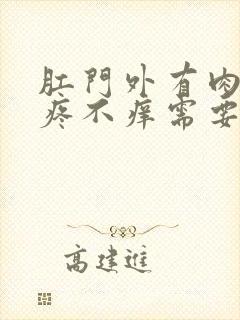 肛門外有肉
疼不痒需要
高建進